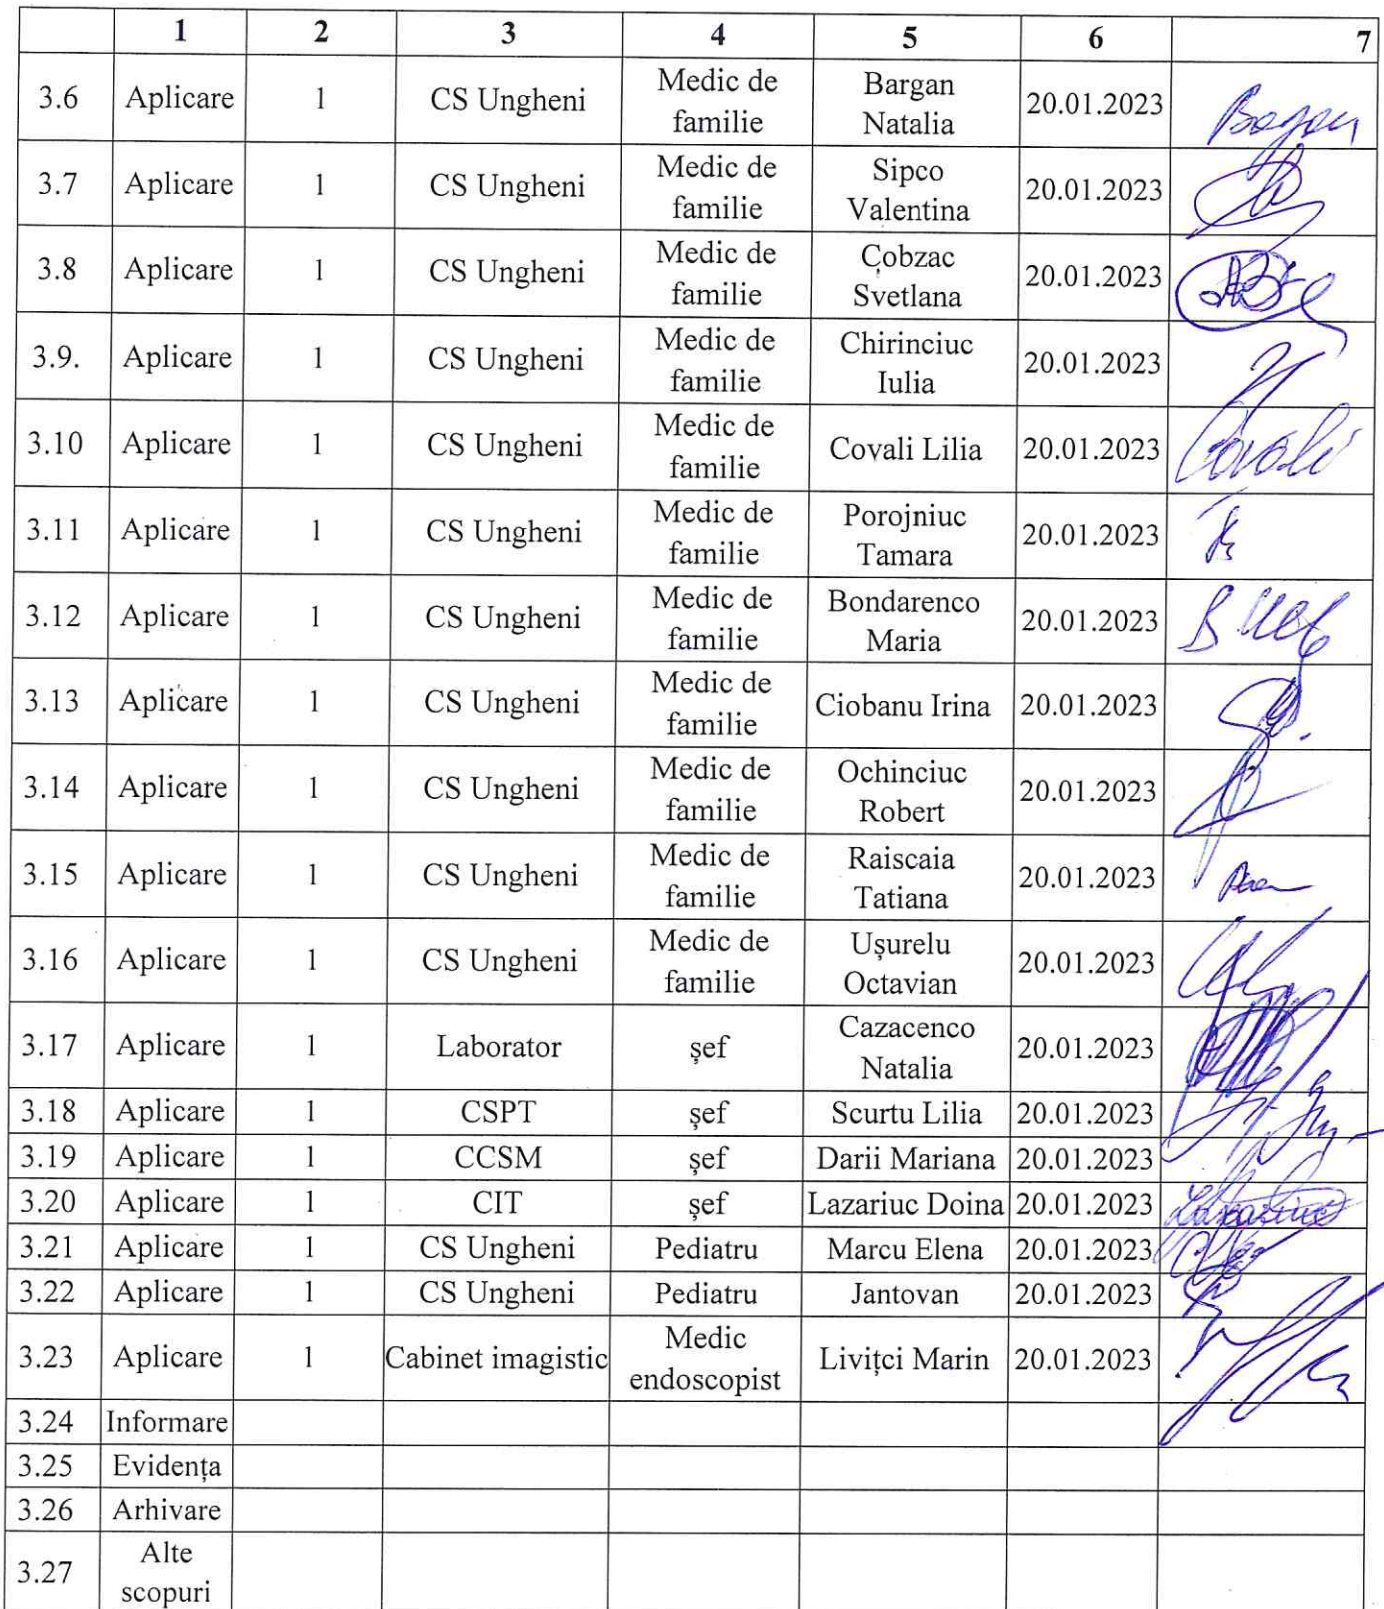 1 2 3 4 5 6 7
3.6 Aplicare 1 CS Ungheni Medic de familie Bargan Natalia 20.01.2023
3.7 Aplicare 1 CS Ungheni Medic de familie Sipco Valentina 20.01.2023
3.8 Aplicare 1 CS Ungheni Medic de familie Cobzac Svetlana 20.01.2023
3.9. Aplicare 1 CS Ungheni Medic de familie Chirinciuc Iulia 20.01.2023
3.10 Aplicare 1 CS Ungheni Medic de familie Covali Lilia 20.01.2023 Covali
3.11 Aplicare 1 CS Ungheni Medic de familie Porojniuc Tamara 20.01.2023
3.12 Aplicare 1 CS Ungheni Medic de familie Bondarenco Maria 20.01.2023
3.13 Aplicare 1 CS Ungheni Medic de familie Ciobanu Irina 20.01.2023
3.14 Aplicare 1 CS Ungheni Medic de familie Ochinciuc Robert 20.01.2023
3.15 Aplicare 1 CS Ungheni Medic de familie Raiscaia Tatiana 20.01.2023
3.16 Aplicare 1 CS Ungheni Medic de familie Ușurelu Octavian 20.01.2023
3.17 Aplicare 1 Laborator șef Cazacenco Natalia 20.01.2023
3.18 Aplicare 1 CSPT șef Scurtu Lilia 20.01.2023
3.19 Aplicare 1 CCSM șef Darii Mariana 20.01.2023
3.20 Aplicare 1 CIT șef Lazariuc Doina 20.01.2023
3.21 Aplicare 1 CS Ungheni Pediatru Marcu Elena 20.01.2023
3.22 Aplicare 1 CS Ungheni Pediatru Jantovan 20.01.2023
3.23 Aplicare 1 Cabinet imagistic Medic endoscopist Livițci Marin 20.01.2023
3.24 Informare
3.25 Evidența
3.26 Arhivare
3.27 Alte scopuri